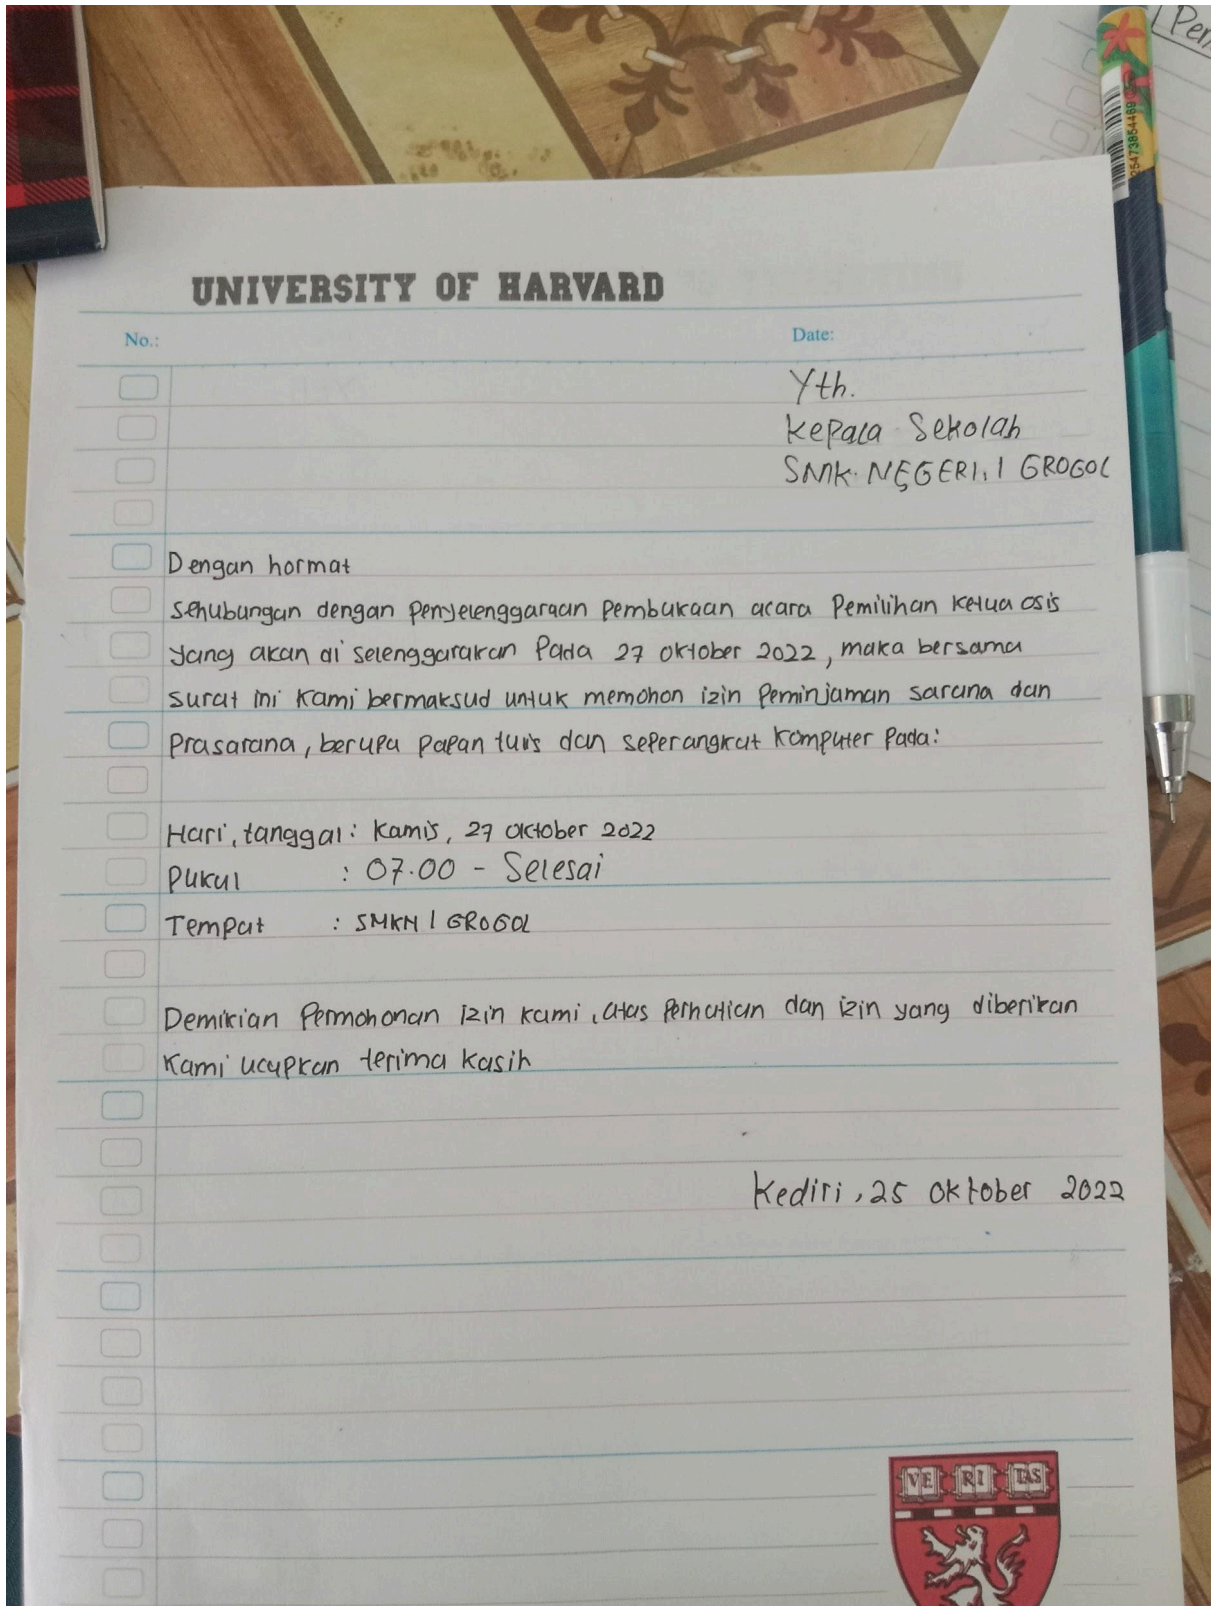 Pem
2547385446
UNIVERSITY OF HARVARD
No.: Date:
Yth.
Kepala Sekolah
SMK NEGERI 1 GROGOL
Dengan hormat
Sehubungan dengan penyelenggaraan pembukaan acara Pemilihan Ketua osis
yang akan di selenggarakan Pada 27 oktober 2022, maka bersama
surat ini kami bermaksud untuk memohon izin Peminjaman sarana dan
Prasarana, berupa papan tulis dan seperangkat komputer Pada:
Hari, tanggal : Kamis, 27 oktober 2022
Pukul : 07.00 - Selesai
Tempat : SMKN 1 GROGOL
Demikian Permohonan izin kami, atas Perhatian dan izin yang diberikan
Kami ucapkan terima kasih
Kediri, 25 oktober 2022
VE RI TAS